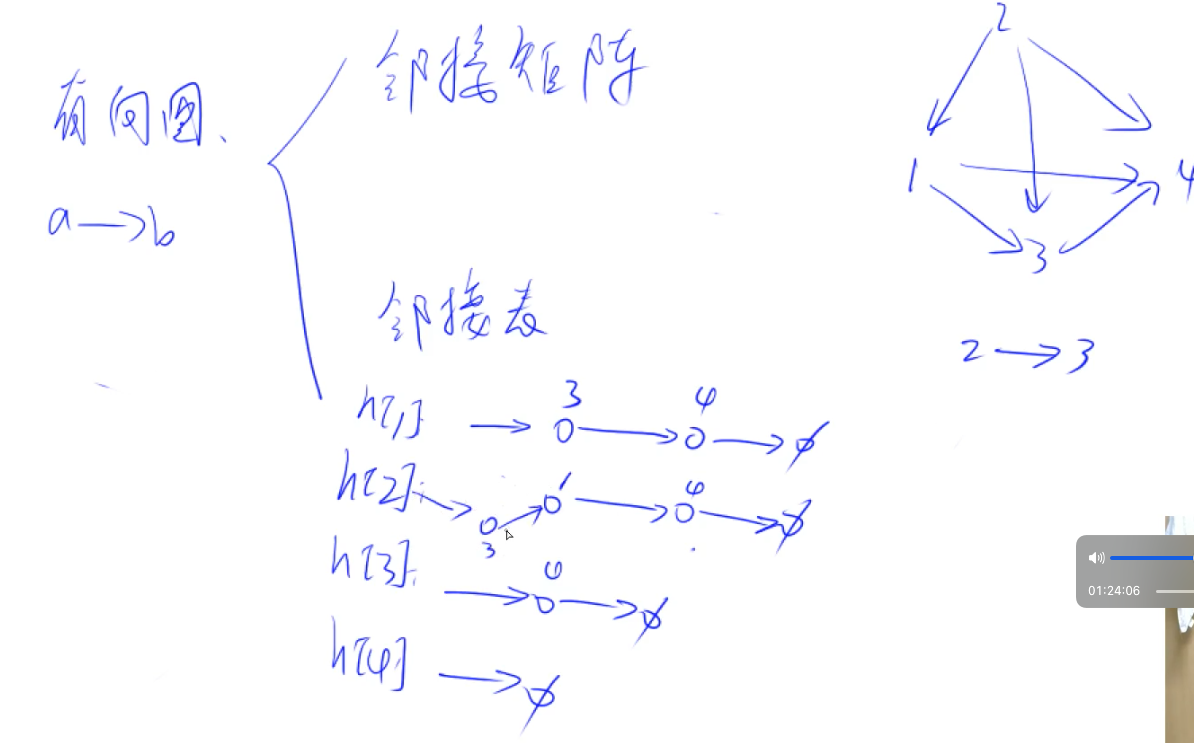 有向图、
a → b
邻接矩阵
邻接表
h[1] → 3 → 4 → ∅
h[2] → 3 → 1 → 4 → ∅
h[3] → 4 → ∅
h[4] → ∅
2
1
4
3
2 → 3
01:24:06